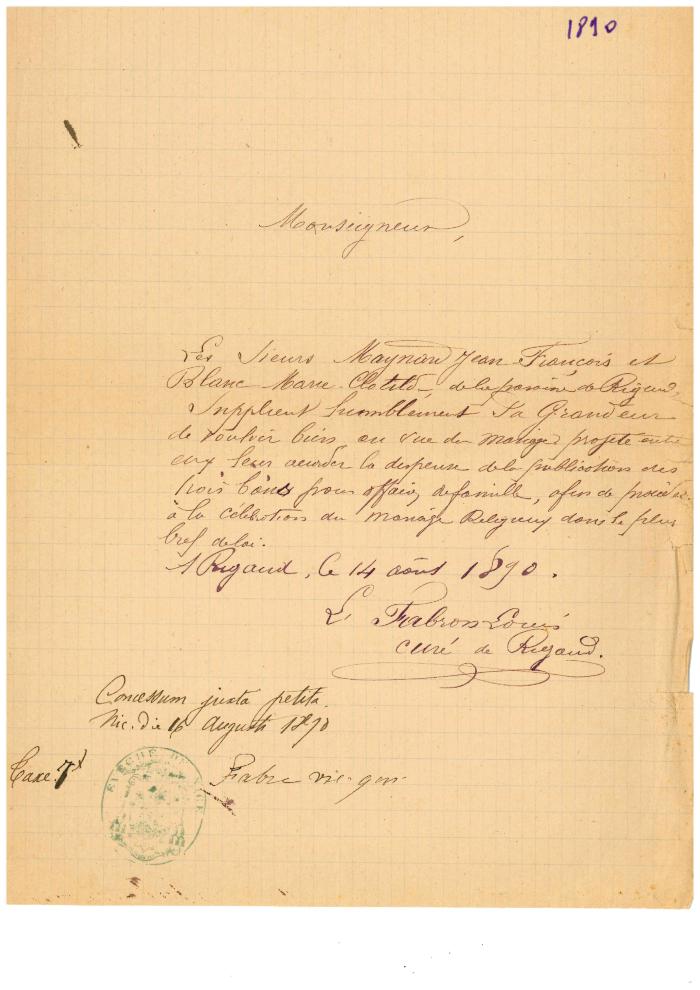 1890
Monseigneur,
Les Sieurs Maynard Jean François et
Blanc Marie Clotilde de la paroisse de Rigaud,
Supplient humblement Sa Grandeur
de vouloir bien, en vue du mariage projeté entre
eux leur accorder la dispense de la publication des
trois bans pour affaires de famille, afin de procéder
à la célébration du mariage Religieux dans le plus
bref delai.
A Rigaud, le 14 août 1890.
L. Fabron Louis
curé de Rigaud.
Concessum juxta petita.
Nic. die 16 augusti 1890
Taxe 7f
Fabre vic. gen.
EVÊCHÉ DE NICE